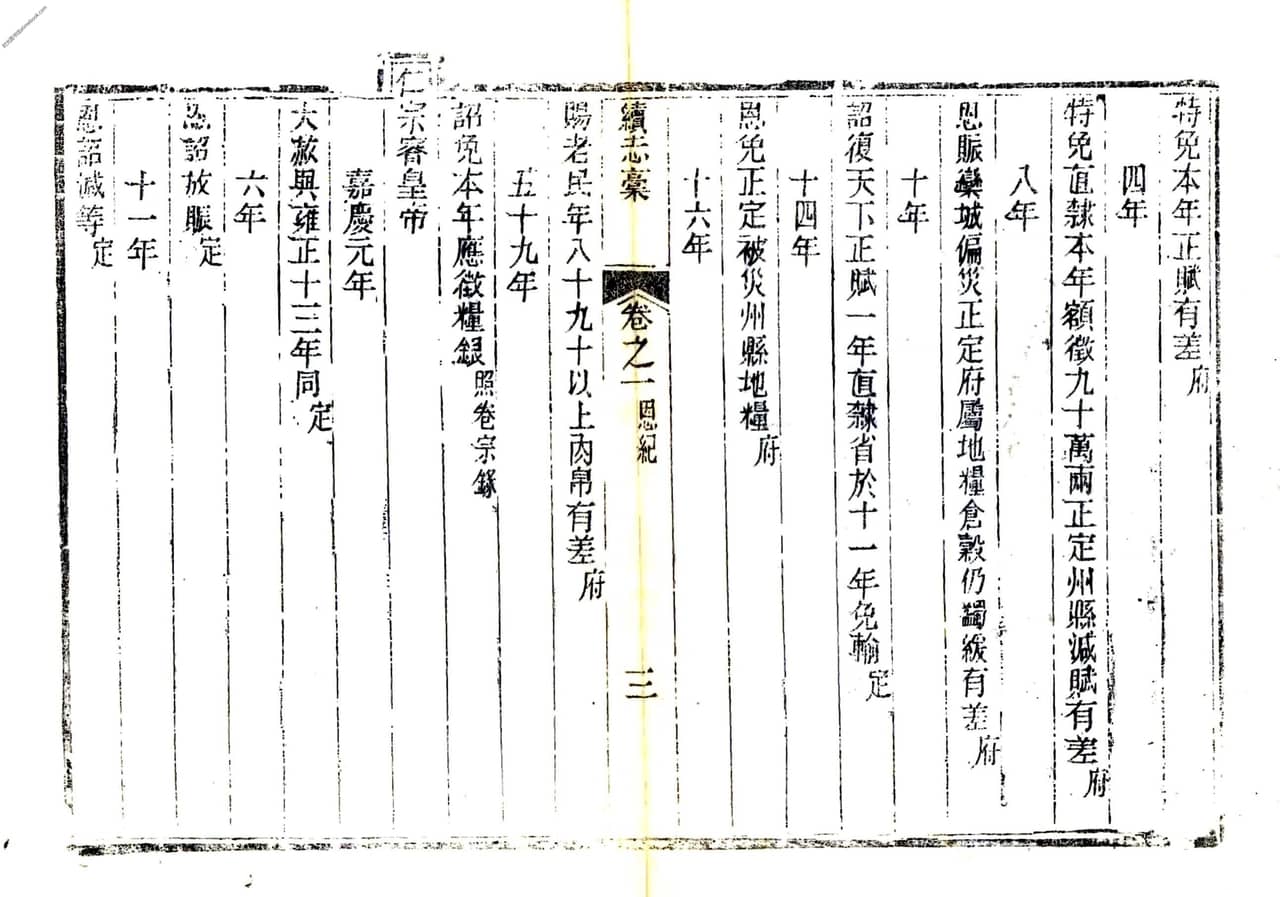 特免本年正賦有差府
四年
特免直隸本年額徵九十萬兩正定州縣減賦有差府
八年
恩賑欒城偏災正定府屬地糧倉穀仍蠲緩有差府
十年
詔復天下正賦一年直隸省於十一年免輸定
十四年
恩免正定被災州縣地糧府
十六年
續志稾 卷之一 恩紀 三
賜老民年八十九十以上肉帛有差府
五十九年
詔免本年應徵糧銀照卷宗錄
仁宗睿皇帝
嘉慶元年
大赦與雍正十三年同定
六年
恩詔放賑定
十一年
恩詔減等定